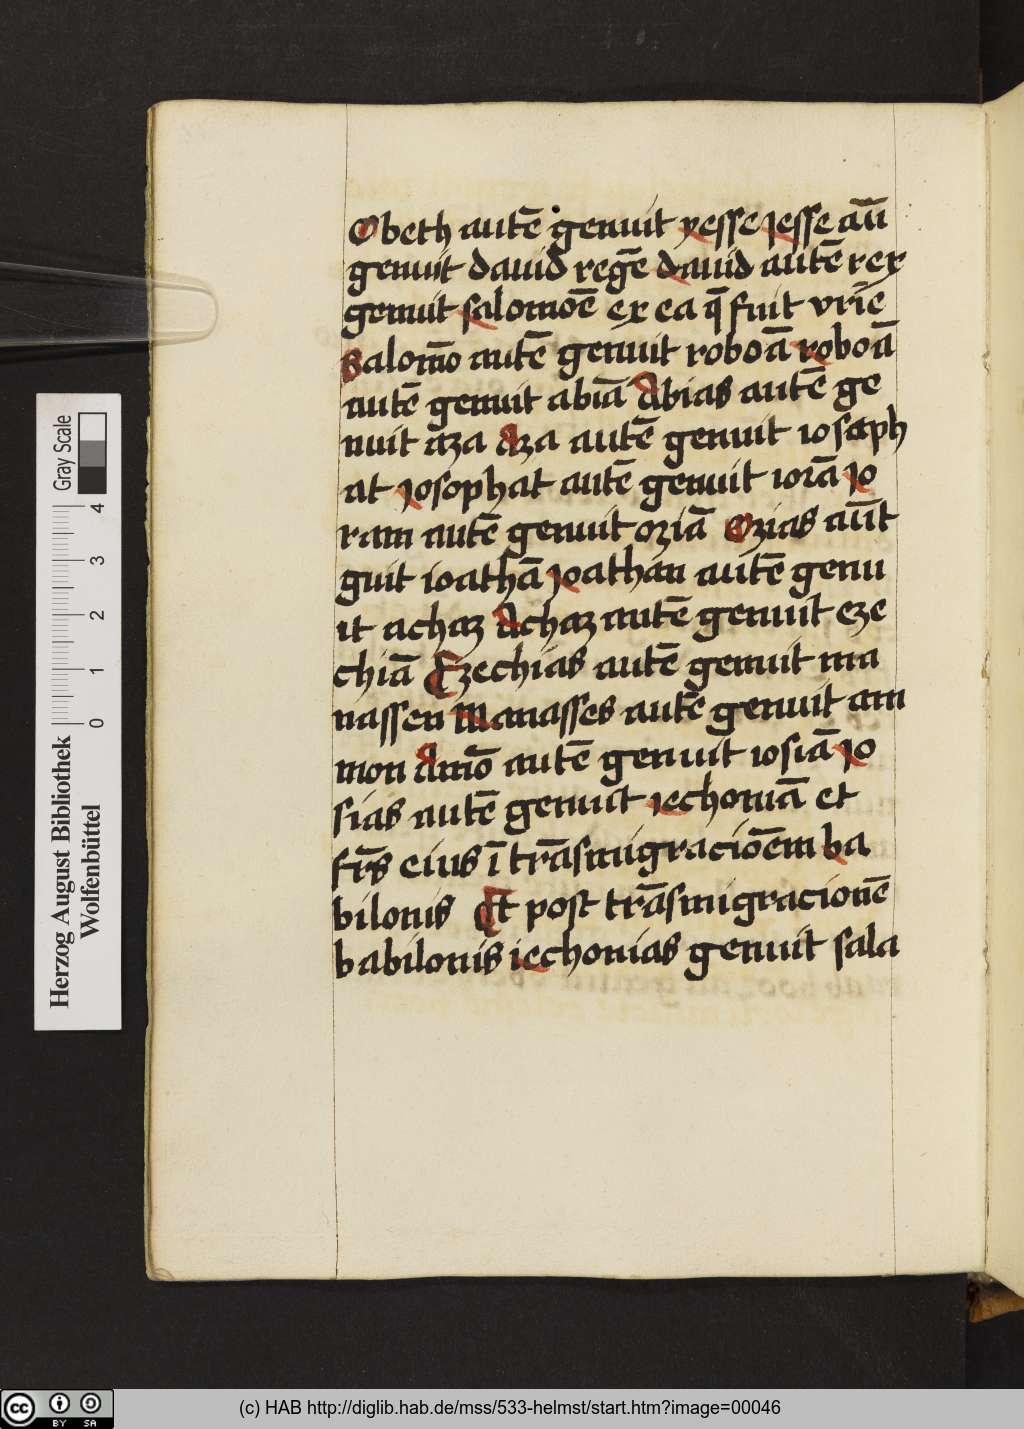 Obeth autē genuit yesse Jesse aūt
genuit dauid regē dauid autē rex
genuit salomōē ex ea q̄ fuit vrīe
Salom̄o autē genuit roboā roboā
autē genuit abiā Abias autē ge
nuit aza Aza autē genuit iosaph
at Josophat autē genuit iorā Jo
ram autē genuit oziā Ozias aūt
guit ioathā Joathan autē genu
it achaz Achaz autē genuit eze
chiā Ezechias autē genuit ma
nassen Manasses autē genuit am
mon Amō autē genuit iosiā Jo
sias autē genuit iechoniā et
fr̄s eius ī trāsmigraciōem ba
bilonis Et post trāsmigracionē
babilonis iechonias genuit sala
Gray Scale
0 1 2 3 4
Herzog August Bibliothek
Wolfenbüttel
cc BY SA
(c) HAB http://diglib.hab.de/mss/533-helmst/start.htm?image=00046